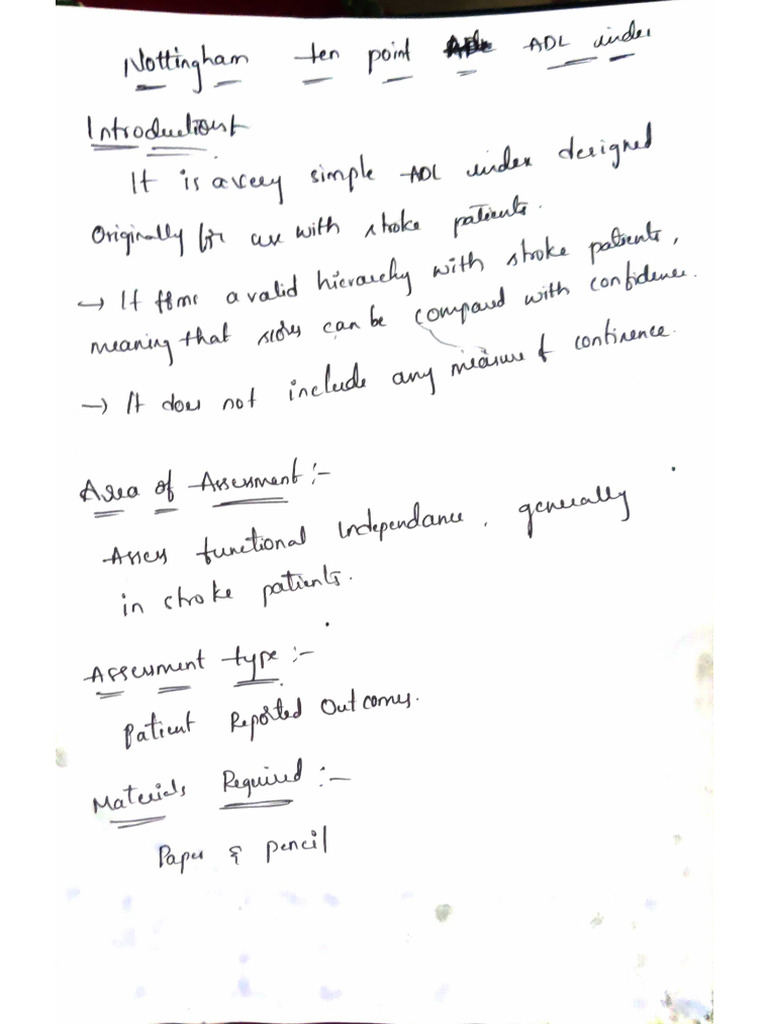 Nottingham ten point ADL index
Introduction:
It is a very simple ADL index designed
Originally for use with stroke patients.
→ It forms a valid hierarchy with stroke patients,
meaning that scores can be compared with confidence.
→ It does not include any measure of continence.
Area of Assessment :-
Assess functional Independance, generally
in stroke patients.
Assessment type :-
Patient Reported Outcomes.
Materials Required :-
Paper & pencil